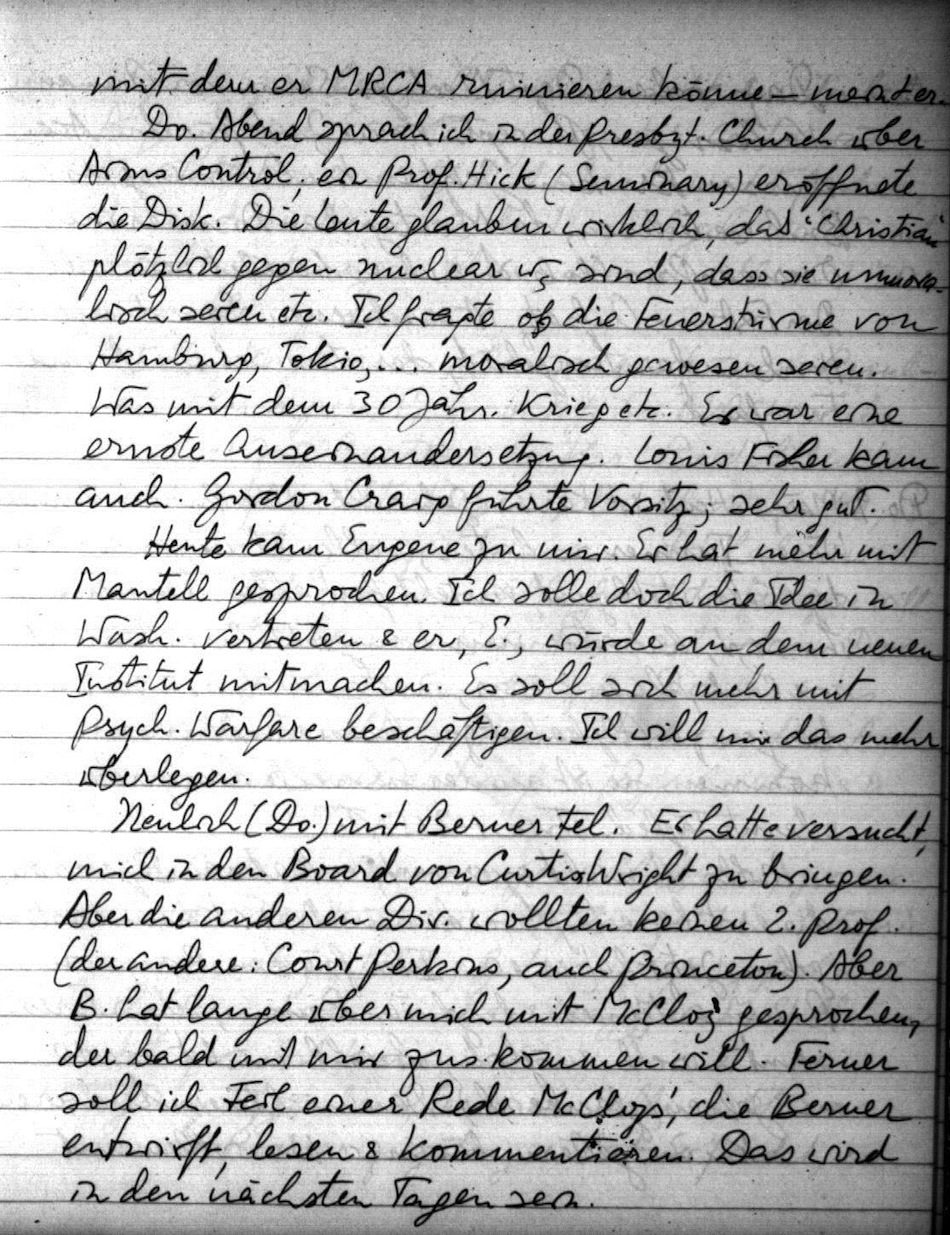 mit dem er MRCA ruinieren könne – meint er.
Do. Abend sprach ich in der Presbyt. Church über
Arms Control; ein Prof. Hick (Seminary) eröffnete
die Disk. Die Leute glauben wirklich, das "Christian"
plötzlich gegen nuclear w's sind, dass sie unmora-
lisch seien etc. Ich fragte ob die Feuerstürme von
Hamburg, Tokio, ... moralisch gewesen seien.
Was mit dem 30 Jähr. Krieg etc. Es war eine
ernste Auseinandersetzung. Louis Fisher kam
auch. Gordon Craig führte Vorsitz; sehr gut.
Heute kam Eugene zu mir. Er hat mehr mit
Mantell gesprochen. Ich solle doch die Idee in
Wash. vertreten & er, E., würde an dem neuen
Institut mitmachen. Es soll sich mehr mit
Psych. Warfare beschäftigen. Ich will mir das mehr
überlegen.
Neulich (Do.) mit Berner tel. Er hatte versucht,
mich in den Board von Curtis Wright zu bringen.
Aber die anderen Dir. wollten keinen 2. Prof.
(der andere: Court Perkins, auch Princeton). Aber
B. hat lange über mich mit McCloy gesprochen,
der bald mit mir zus. kommen will. Ferner
soll ich Teil einer Rede McCloys', die Berner
entwirft, lesen & kommentieren. Das wird
in den nächsten Tagen sein.